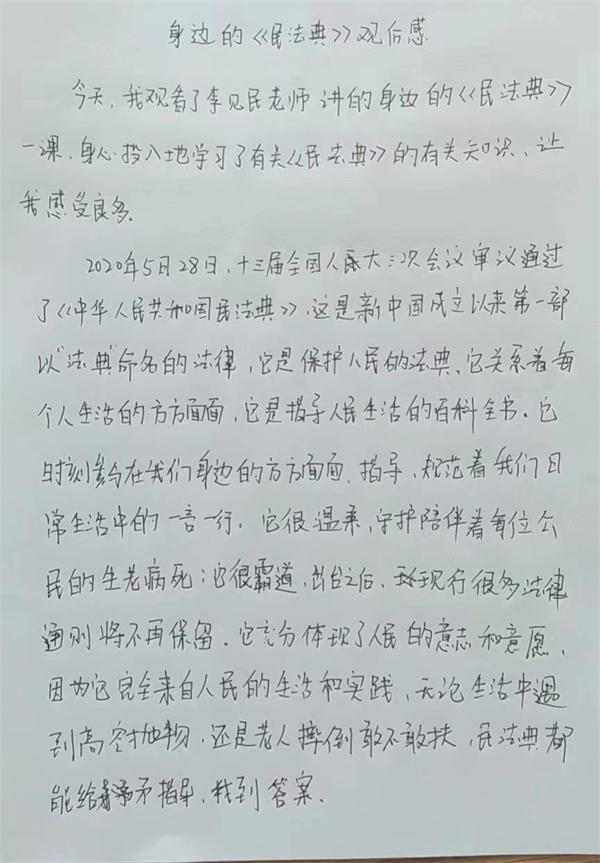 身边的《民法典》观后感
今天,我观看了李见民老师讲的身边的《民法典》
一课,身心投入地学习了有关《民法典》的有关知识,让
我感受良多。
2020年5月28日,十三届全国人民大三次会议审议通过
了《中华人民共和国民法典》,这是新中国成立以来第一部
以“法典”命名的法律,它是保护人民的法典、它关系着每
个人生活的方方面面,它是指导人民生活的百科全书。它
时刻参与在我们身边的方方面面,指导、规范着我们日
常生活中的一言一行。它很温柔,守护陪伴着每位公
民的生老病死;它很霸道,出台之后,现行很多法律
通则将不再保留。它充分体现了人民的意志和意愿,
因为它完全来自人民的生活和实践,无论生活中遇
到高空抛物,还是老人摔倒敢不敢扶,民法典都
能给指导,找到答案。